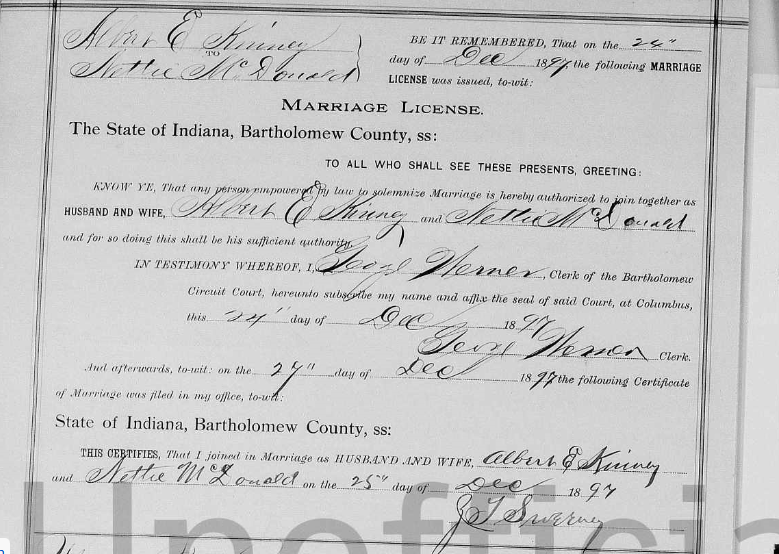 Albert E Kinney
TO
Nettie McDonald
BE IT REMEMBERED, That on the 24"
day of Dec 1897, the following MARRIAGE
LICENSE was issued, to-wit:
MARRIAGE LICENSE.
The State of Indiana, Bartholomew County, ss:
TO ALL WHO SHALL SEE THESE PRESENTS, GREETING:
KNOW YE, That any person empowered by law to solemnize Marriage is hereby authorized to join together as
HUSBAND AND WIFE, Albert E Kinney and Nettie McDonald
and for so doing this shall be his sufficient authority.
IN TESTIMONY WHEREOF, I, George Werner, Clerk of the Bartholomew
Circuit Court, hereunto subscribe my name and affix the seal of said Court, at Columbus,
this 24" day of Dec 1897
George Werner Clerk.
And afterwards, to-wit: on the 27" day of Dec 1897 the following Certificate
of Marriage was filed in my office, to-wit:
State of Indiana, Bartholomew County, ss:
THIS CERTIFIES, That I joined in Marriage as HUSBAND AND WIFE, Albert E Kinney
and Nettie McDonald on the 25" day of Dec 1897